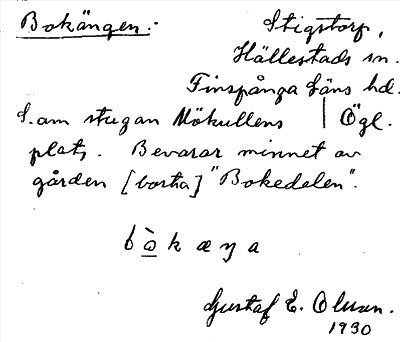 Bokängen:- Stigstorp,
Hällestads sn.
Finspånga läns hd.
S. om stugan Mökullens | Ögl.
plats. Bevarar minnet av
gården [borta] "Bokedelen".
bò̲kæŋa
Gustaf E. Olsson.
1930